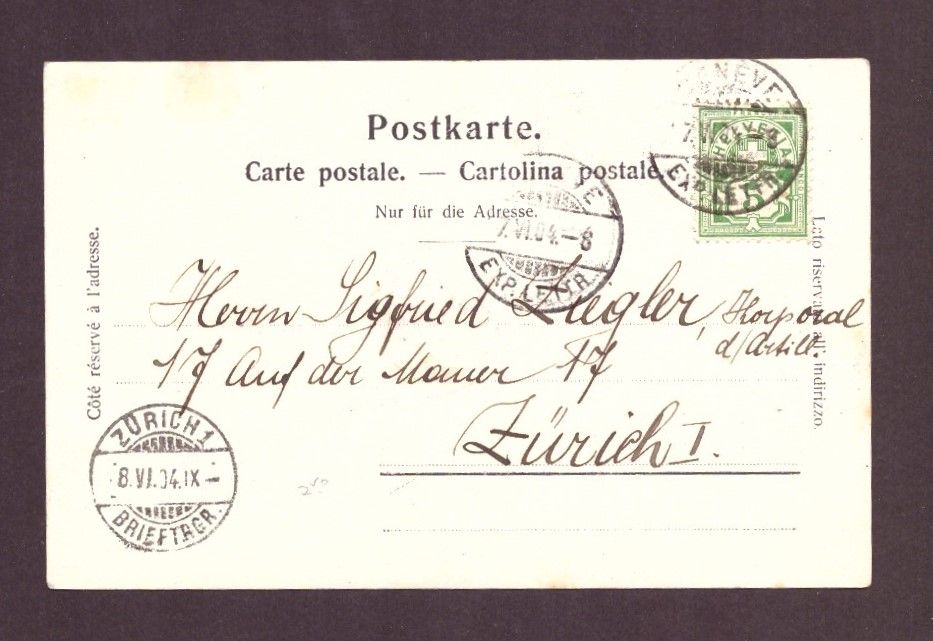 Postkarte.
Carte postale. — Cartolina postale.
Nur für die Adresse.
Côté réservé à l'adresse.
Lato riservato all' indirizzo.
GENÈVE
VI
EXP. LETTR.
HELVETIA
5
7.VI.04.–8
EXP. LETTR.
Herrn Sigfried Ziegler, Korporal
d/Artill.
17 Auf der Mauer 17
Zürich I.
ZÜRICH 1
8.VI.04.IX–
BRIEFTRGR.